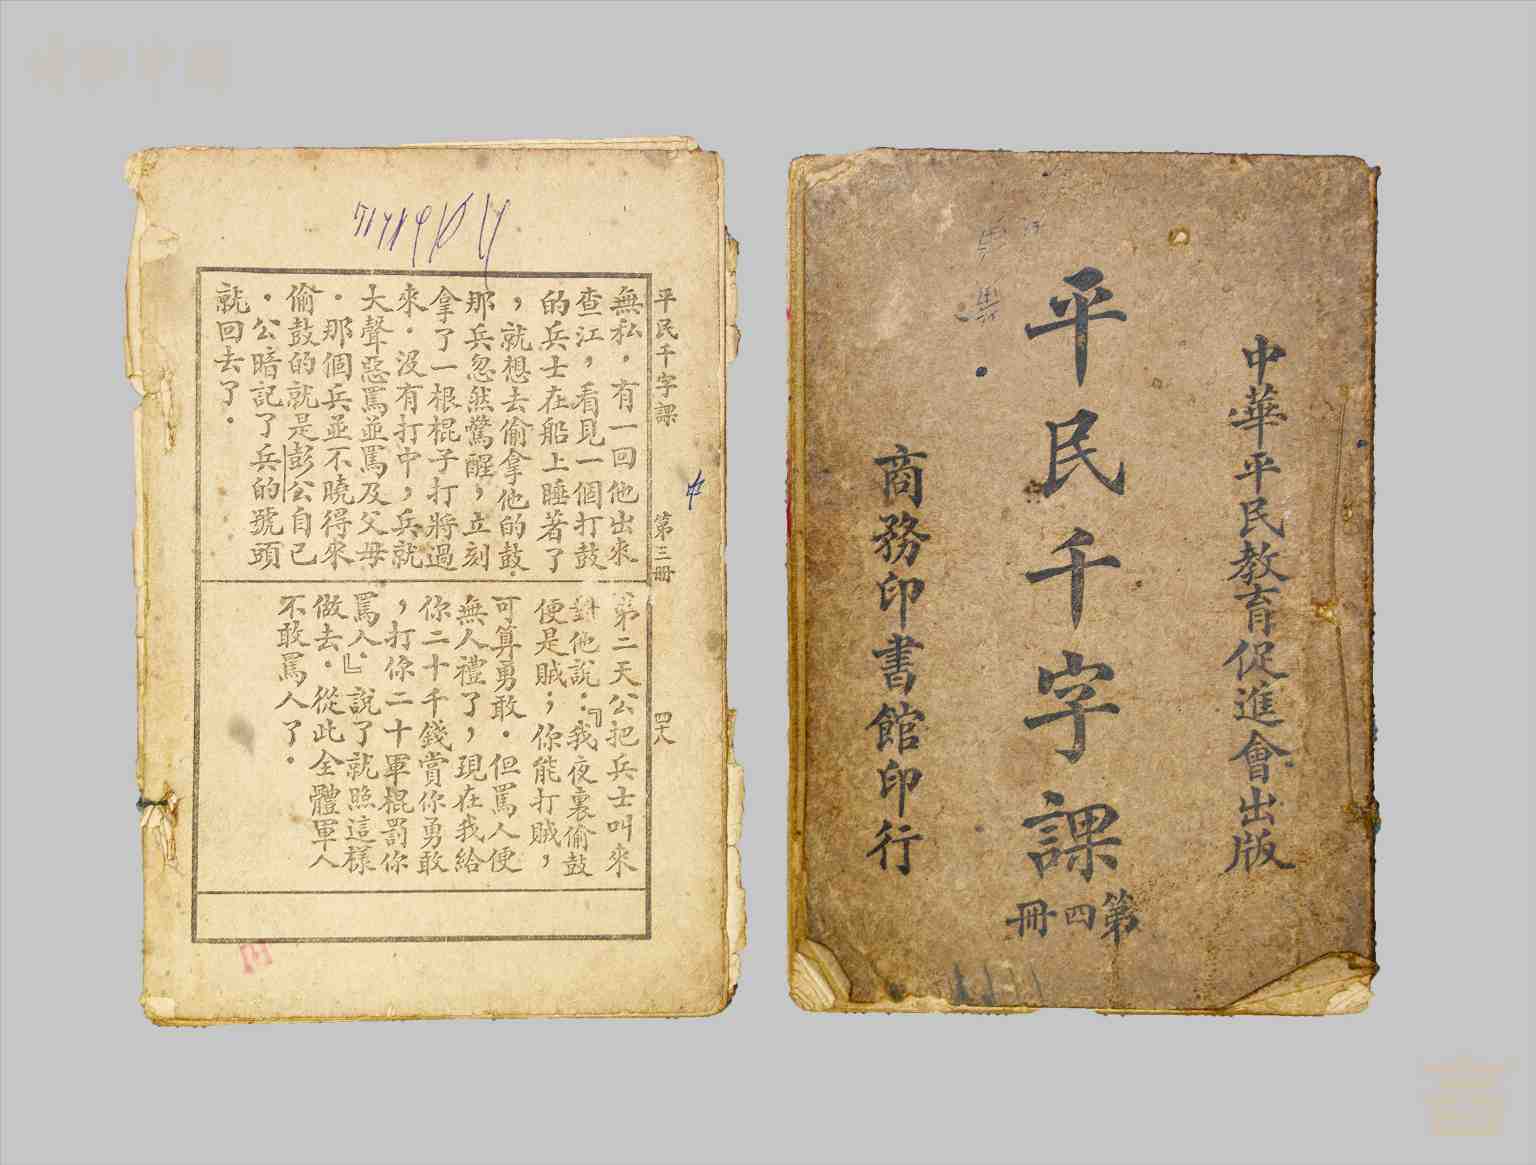 平民千字課 第三冊 四十八
無私．有一回他出來
查江，看見一個打鼓
的兵士在船上睡著了
，就想去偷拿他的鼓．
那兵忽然驚醒，立刻
拿了一根棍子打將過
來．沒有打中，兵就
大聲惡罵並罵及父母
．那個兵並不曉得來
偷鼓的就是彭公自己
．公暗記了兵的號頭
就回去了．
第二天公把兵士叫來
對他說：『我夜裏偷鼓
便是賊；你能打賊，
可算勇敢．但罵人便
無人禮了，現在我給
你二十千錢賞你勇敢
，打你二十軍棍罰你
罵人．』說了就照這樣
做去．從此全體軍人
不敢罵人了．
中
中華平民教育促進會出版
平民千字課
第四冊
商務印書館印行